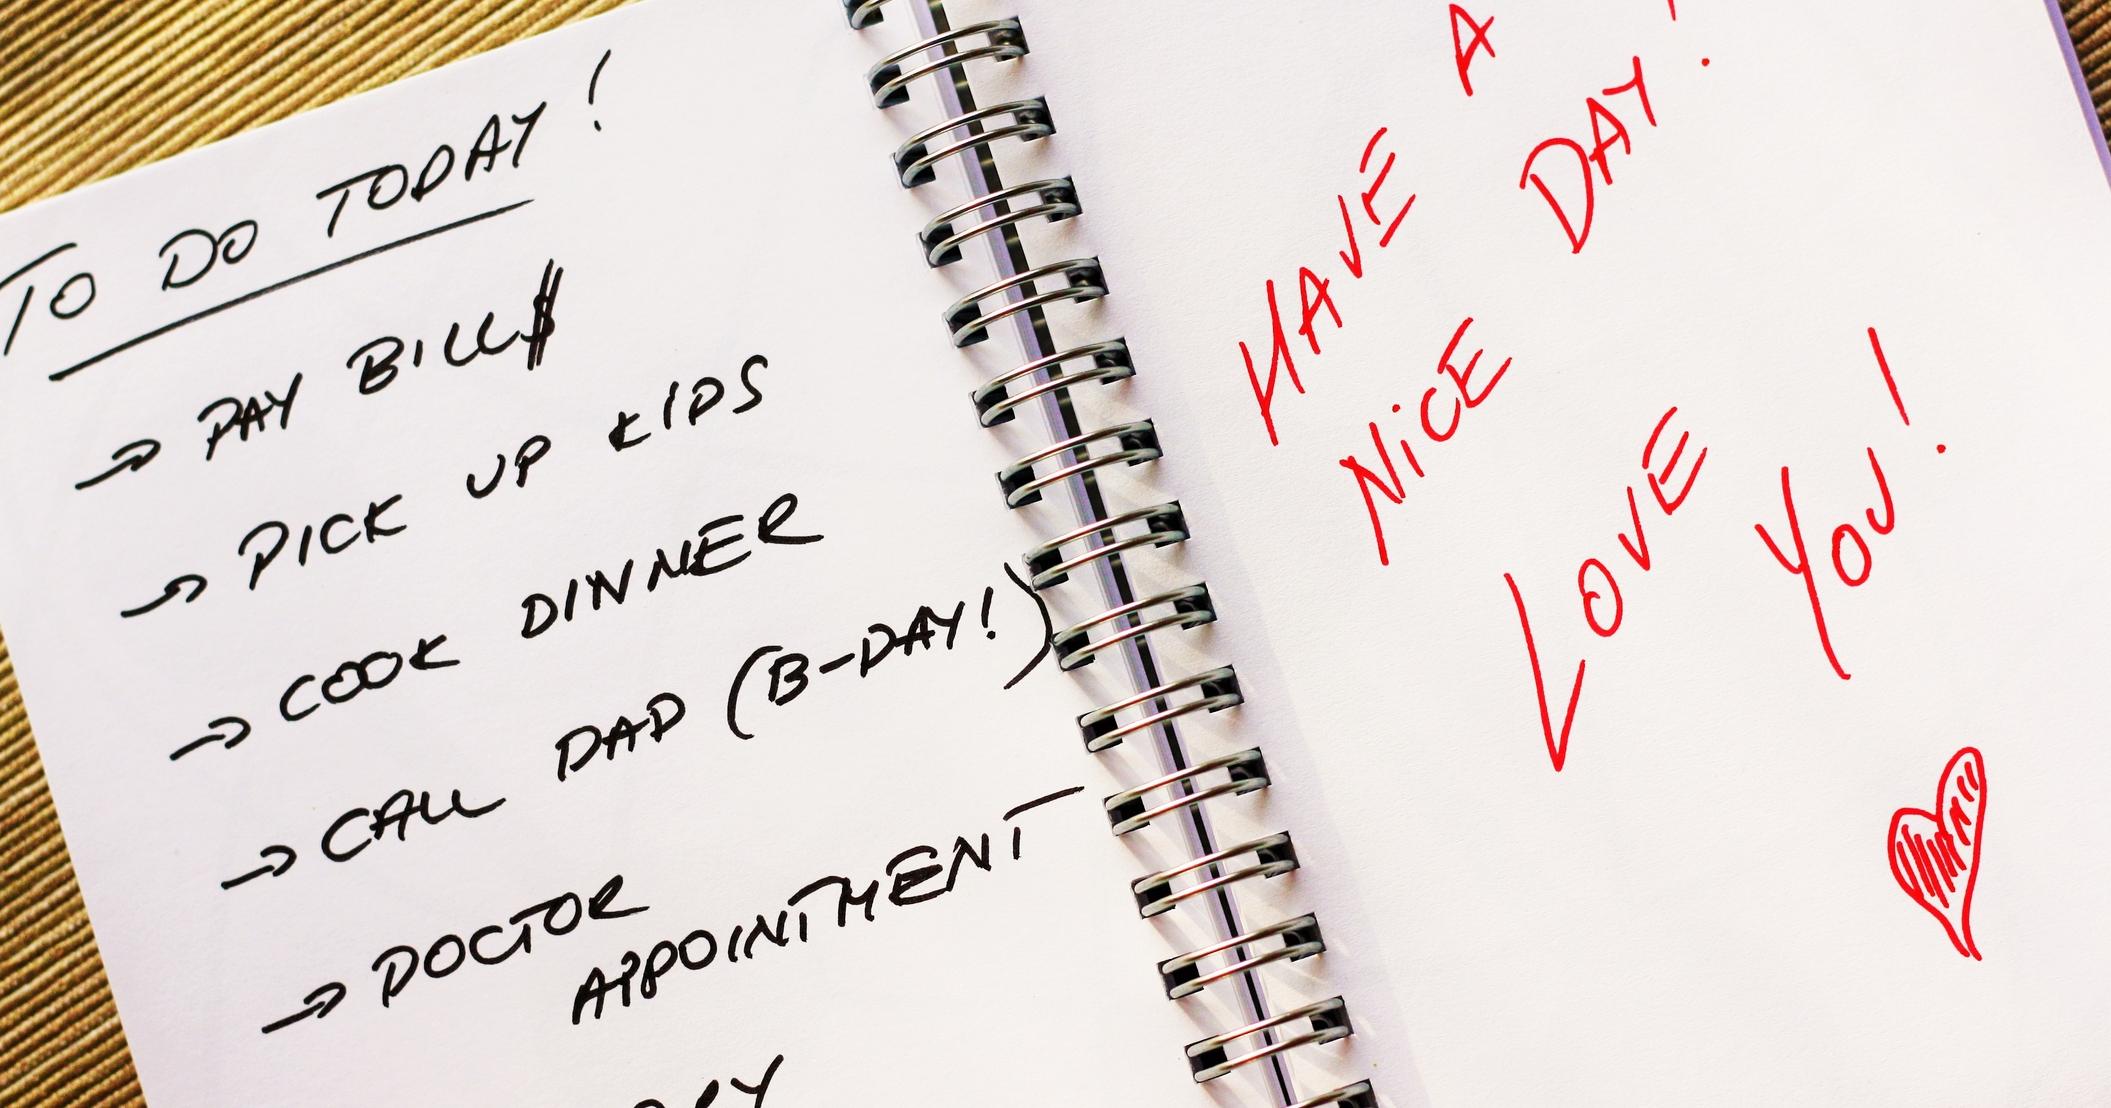 TO DO TODAY!
→ PAY BILL$
→ PICK UP KIDS
→ COOK DINNER
→ CALL DAD (B-DAY!)
→ DOCTOR
APPOINTMENT
HAVE A
NICE DAY!
LOVE YOU!